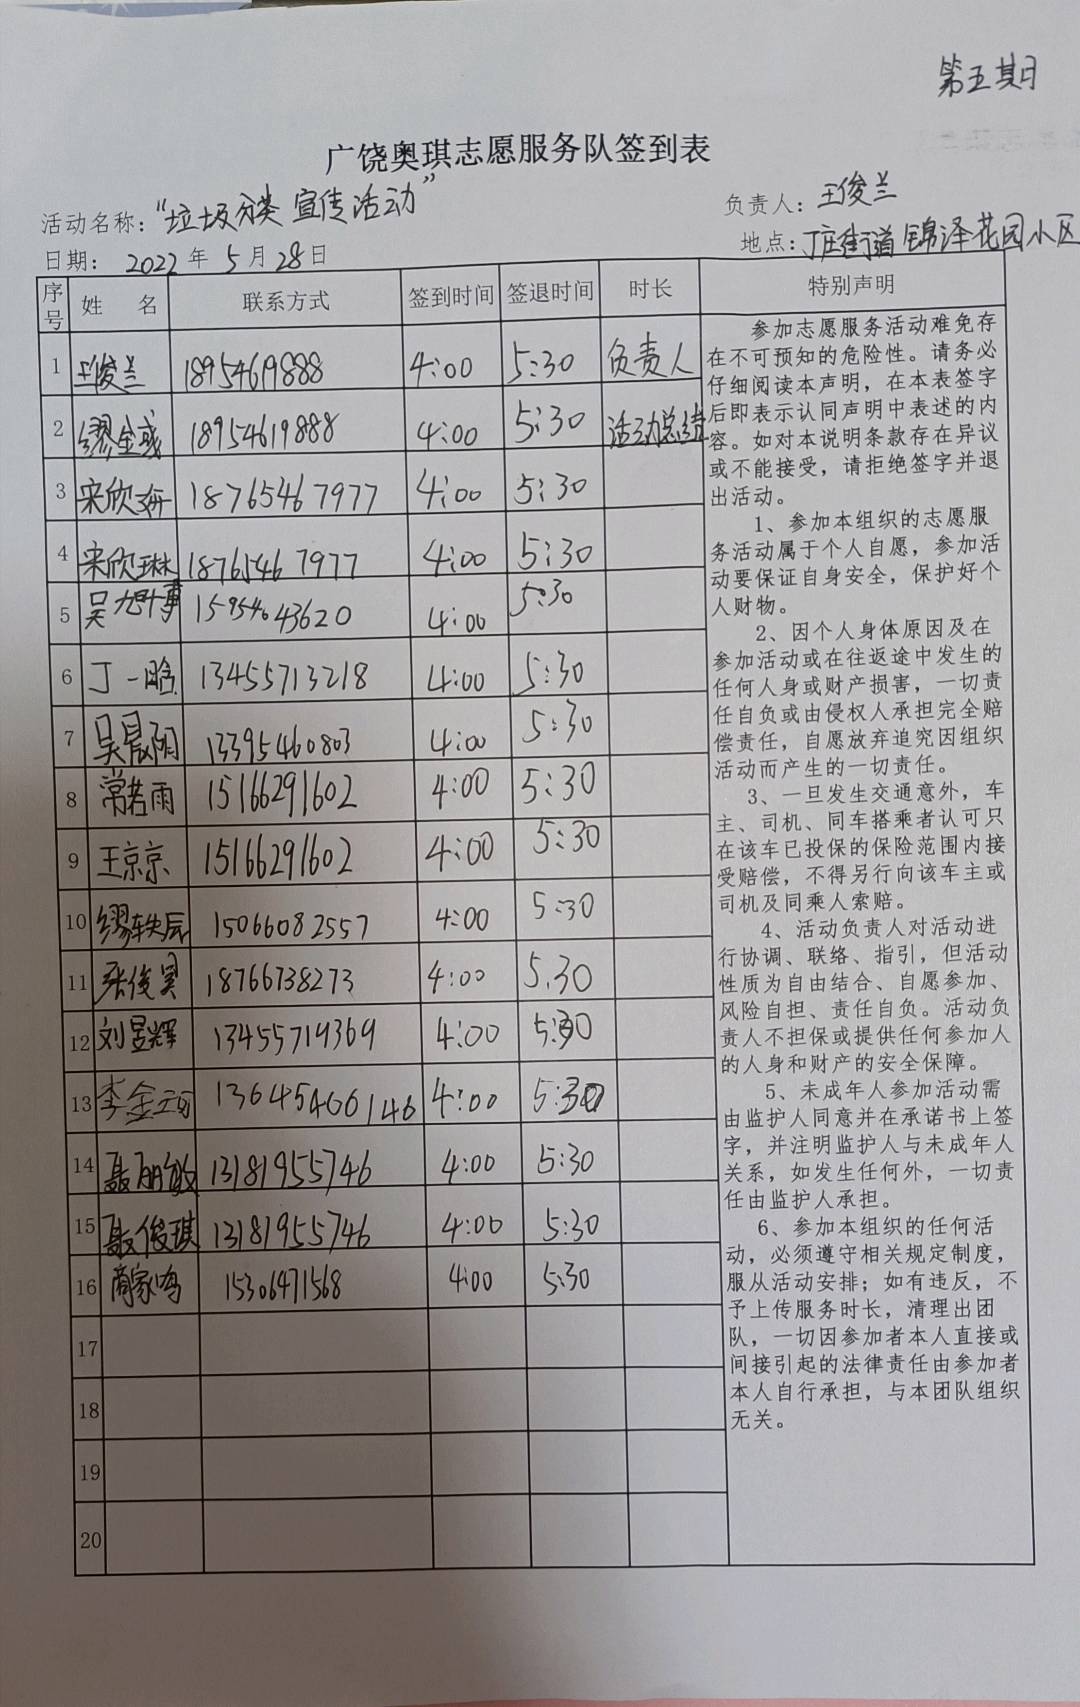 第五期
广饶奥琪志愿服务队签到表
活动名称：“垃圾分类 宣传活动” 负责人：王俊兰
日期： 2022 年 5 月 28 日 地点：丁庄街道 锦泽花园小区
序号 姓 名 联系方式 签到时间 签退时间 时长 特别声明
1 王俊兰 18954619888 4:00 5:30 负责人
2 缪金彧 18954619888 4:00 5:30 活动总结
3 宋欣妍 18765467977 4:00 5:30
4 宋欣琳 18765467977 4:00 5:30
5 吴旭晔 15954643620 4:00 5:30
6 丁一晗 13455713218 4:00 5:30
7 吴晨阳 13395460803 4:00 5:30
8 常若雨 15166291602 4:00 5:30
9 王京京 15166291602 4:00 5:30
10 缪轶辰 15066082557 4:00 5:30
11 张俊昊 18766738273 4:00 5.30
12 刘昱辉 13455719369 4:00 5:30
13 李金 13645466146 4:00 5:30
14 聂丽敏 13181955746 4:00 5:30
15 聂俊琪 13181955746 4:00 5:30
16 商家鸣 15306471568 4:00 5:30
17
18
19
20
参加志愿服务活动难免存
在不可预知的危险性。请务必
仔细阅读本声明，在本表签字
后即表示认同声明中表述的内
容。如对本说明条款存在异议
或不能接受，请拒绝签字并退
出活动。
1、参加本组织的志愿服
务活动属于个人自愿，参加活
动要保证自身安全，保护好个
人财物。
2、因个人身体原因及在
参加活动或在往返途中发生的
任何人身或财产损害，一切责
任自负或由侵权人承担完全赔
偿责任，自愿放弃追究因组织
活动而产生的一切责任。
3、一旦发生交通意外，车
主、司机、同车搭乘者认可只
在该车已投保的保险范围内接
受赔偿，不得另行向该车主或
司机及同乘人索赔。
4、活动负责人对活动进
行协调、联络、指引，但活动
性质为自由结合、自愿参加、
风险自担、责任自负。活动负
责人不担保或提供任何参加人
的人身和财产的安全保障。
5、未成年人参加活动需
由监护人同意并在承诺书上签
字，并注明监护人与未成年人
关系，如发生任何外，一切责
任由监护人承担。
6、参加本组织的任何活
动，必须遵守相关规定制度，
服从活动安排；如有违反，不
予上传服务时长，清理出团
队，一切因参加者本人直接或
间接引起的法律责任由参加者
本人自行承担，与本团队组织
无关。